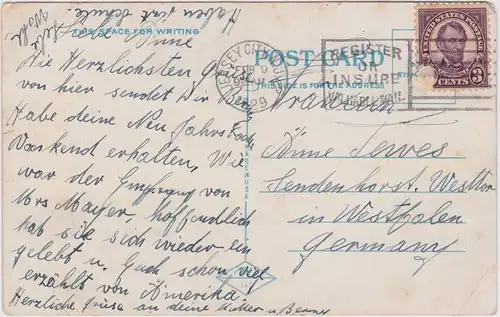 Haben jetzt Schule.
THIS SPACE FOR WRITING
Liebe Änne
Die Herzlichsten Grüße
von hier sendet Dir Benny
Habe deine Neu Jahrs Karte
Dankend erhalten, Wie
war der Empfang von
Mrs Mayer, hoffendlich
hat sie sich wieder ein
gelebt u. Euch schon viel
erzählt von Amerika.
Herzliche Grüse an deine Mutter u
POST CARD
THIS SIDE IS FOR THE ADDRESS
JERSEY CITY
FEB 9
1929
REGISTER
OR
INSURE
VALUABLE MAIL
UNITED STATES POSTAGE
LINCOLN
3 CENTS 3
MADE IN U.S.A.
Fräulein
Änne Sewes
Sendenhorst. Westtor
in Westfalen
Germany